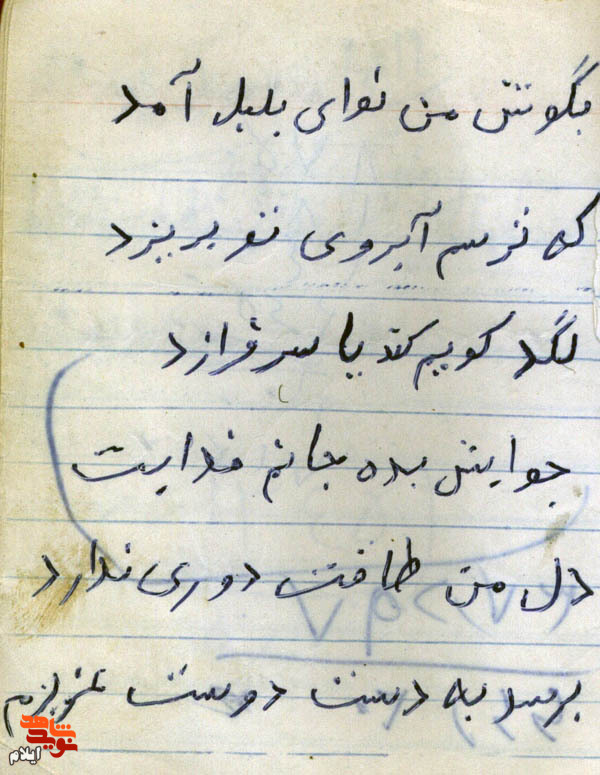 بگوش من نوای بلبل آمد
که ترسم آبروی تو بریزد
لگد کوبم کند یا سرفرازد
جوابش بده جانم فدایت
دل من طاقت دوری ندارد
برسد به دست دوست عزیزم
نوید شاهد
ایلام